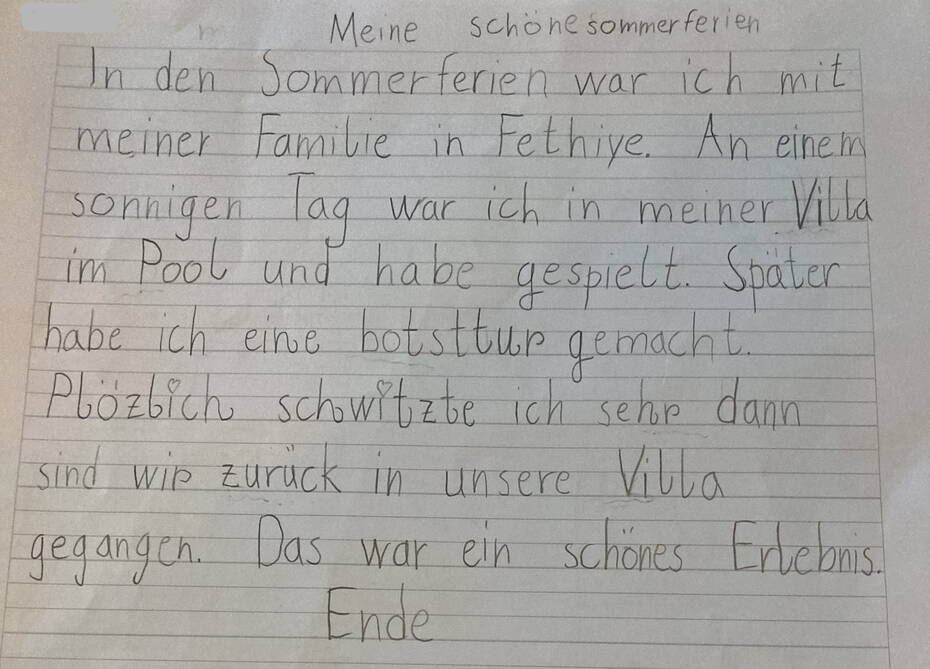 Meine schöne sommerferien
In den Sommerferien war ich mit
meiner Familie in Fethiye. An einem
sonnigen Tag war ich in meiner Villa
im Pool und habe gespielt. Später
habe ich eine botsttur gemacht.
Plözlich schwitzte ich sehr dann
sind wir zurück in unsere Villa
gegangen. Das war ein schönes Erlebnis.
Ende